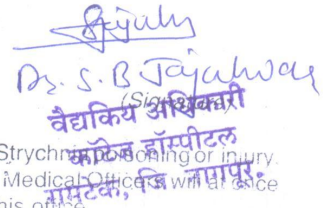 Dr. S. B
(Signature)
वैद्यकिय अधिकारी
कॉटेज हॉस्पीटल
रामटेक, जि. नागपूर.
Strychnine poisoning or injury.
Medical Officers will at once
his office